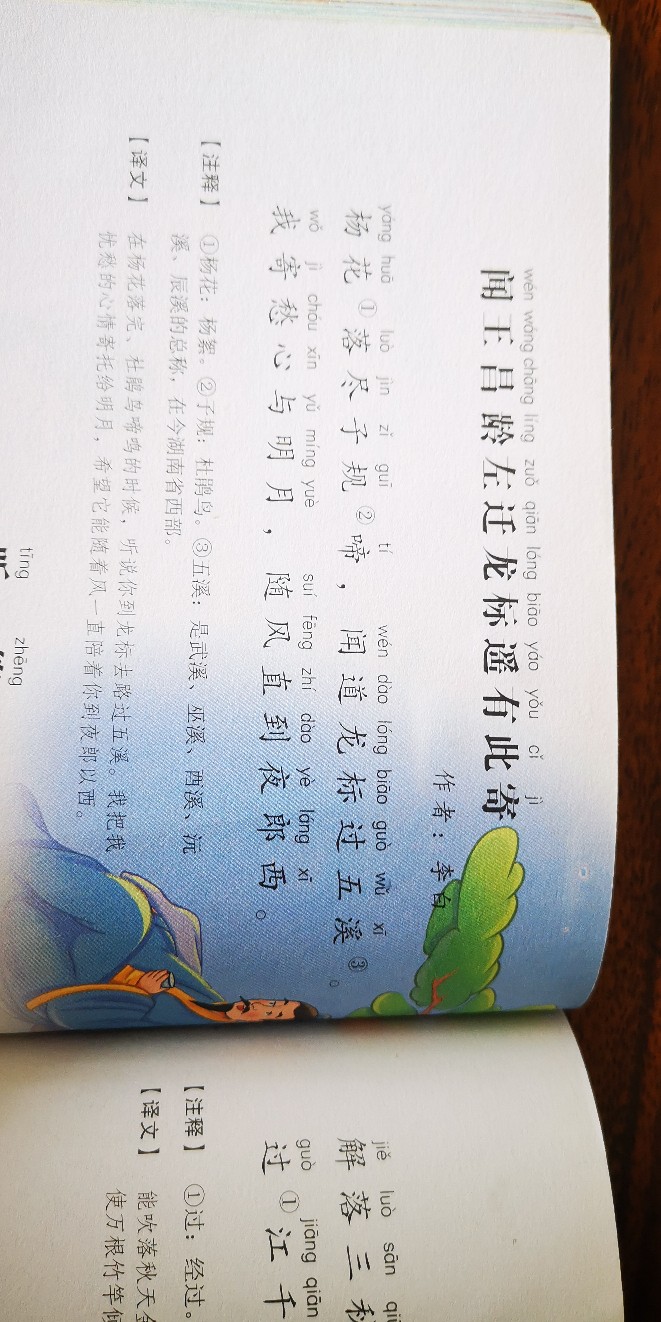 wén wáng chāng líng zuǒ qiān lóng biāo yáo yǒu cǐ jì
闻王昌龄左迁龙标遥有此寄
作者：李白
yáng huā luò jìn zǐ guī tí wén dào lóng biāo guò wǔ xī
杨花①落尽子规②啼，闻道龙标过五溪③。
wǒ jì chóu xīn yǔ míng yuè suí fēng zhí dào yè láng xī
我寄愁心与明月，随风直到夜郎西。
【注释】①杨花：杨絮。②子规：杜鹃鸟。③五溪：是武溪、巫溪、酉溪、沅
溪、辰溪的总称，在今湖南省西部。
【译文】在杨花落完、杜鹃鸟啼鸣的时候，听说你到龙标去路过五溪。我把我
忧愁的心情寄托给明月，希望它能随着风一直陪着你到夜郎以西。
tīng zhēng
jiě luò sān
解落三秋
guò jiāng qiān
过①江千
【注释】①过：经过。
【译文】能吹落秋天
使万根竹竿倾